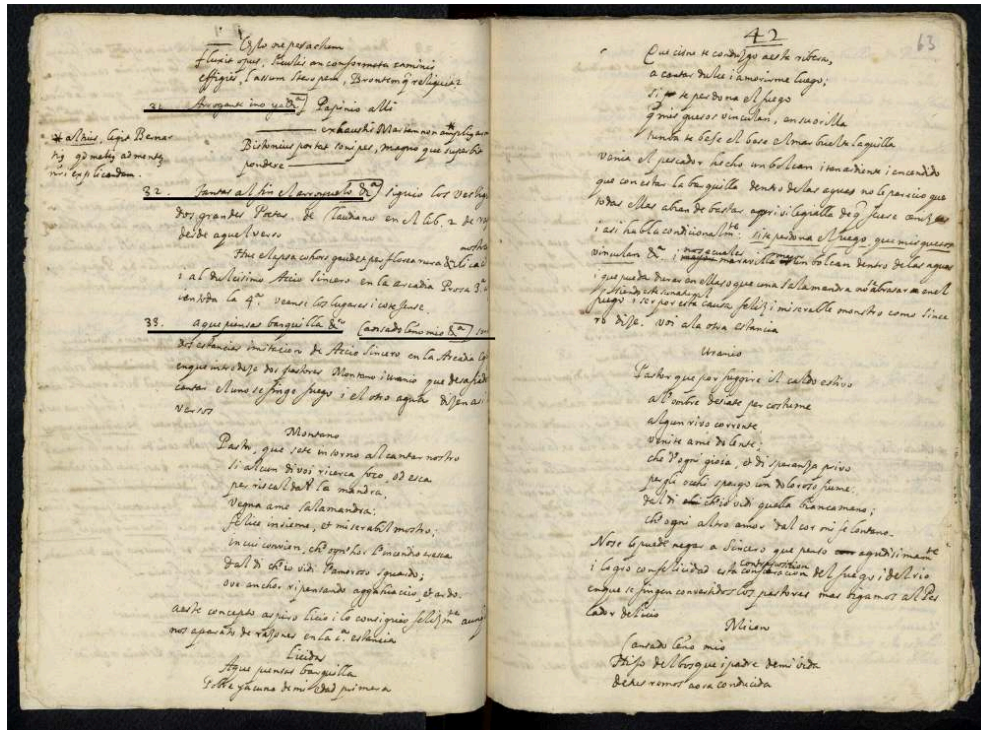 fluxit opus, siculis an conformata caminis
effigies, lassum Steropem, Brontemq reliquit?
31. Arroyente ino ya &a) Papinio alli
exhaustis Martem non amplius armis
* altius, legit Bernar
Bistonius portat sonipes, magnoque superbit
tig
explicandum.
pondere
32. Tantas al fin el arroyuelo &a) siguio los
dos grandes Poetas. de Claudiano en el lib. 2 de
desde aquel verso
Huc elapsa cohors gaudet per florea rura &
i al dulcisimo Accio Sincero en la arcadia Prosa 3a
i en toda la 4a. veanse los lugares i cotejense.
33. Aque piensas barquilla &a (cansado leño mio &a) son
dos estancias imitacion de Accio Sincero en la Arcadia
enque introduze dos pastores Montano i Uranio que
cantar el uno se finge fuego, i el otro agua: dizen asi
versos
Montano
Pastor, que sete intorno al cantar nostro
si alcun di voi ricerca foco, od esca
per riscaldar la mandra,
vegna a me salamandra;
felice insieme, et miserabil mostro;
in cui convien, ch'ognhor l'incendio cresca
dal di ch'io vidi l'amoroso sguardo;
ove anchor ripensando agghiaccio, et ardo.
a este concepto aspiro Licio i lo consiguio feliz
nos aparato de razones en la 1a. estancia
Licidas
Aque piensas barquilla
Pobre ya cuna de mi edad primera
42
63
Que cisne te conduzgo a esta ribera,
a cantar dulce i a morirme luego;
si te perdona el fuego
q mis huesos vinculan, en su orilla
tumba te bese el mar buelta la quilla
venia el pescador hecho un bolcan i tan ardiente i encendido
que con estar la barquilla dentro de las aguas no le parecio que
todas ellas abian de bastar a privilegialla de q fuese
i asi habla condicionalmte: si te perdona el fuego, que mis huesos
vinculan &a. i maravilla un bolcan dentro de las aguas
i que pueda durar en ellas o que una salamandra no se abrasara en el
fuego i ser por esta causa feliz i miserable monstro como Since
ro dize. voi a la otra estancia
Uranio
Pastor que per fuggire il caldo estivo
all'ombre desiate per costume
alcun rivo corrente
venite a me dolente;
che d'ogni gioia, et di speranza privo
per gli occhi spargo un doloroso fiume;
dal di ch'io vidi quella bianca mano;
ch'ogni altro amor dal cor mi fe lontano.
No se le puede negar a Sincero que penso agudisimamte
i logro con felicidad esta contraposicion del fuego i del rio
en que se fingen convertidos los pastores mas oigamos al Pes
cador de Licio
Micon
Cansado leño mio
Hijo del bosque i padre de mi vida
de tus remos aora conducida